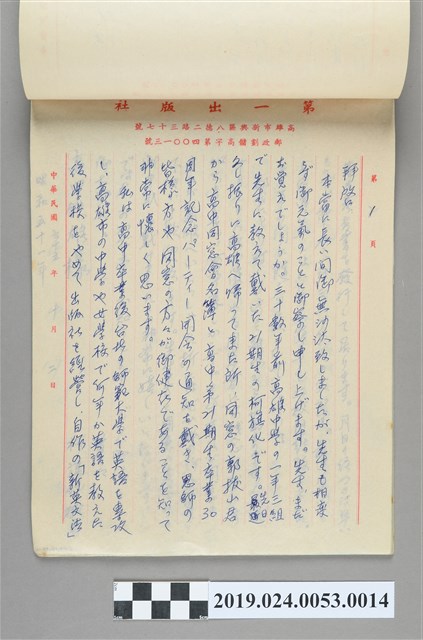 第一出版社
高雄市新興區八德二路三十七號
郵政劃儲高字第四〇〇一三號
第 1 頁
拝啓
本当に長い間御無沙汰致しましたが、先生も相変
らず御元気のことと御察し申し上げます。先生、まだ
お覚えでしょうか。三十数年前高雄中学の一年三組
で先生に教えて戴いた21期生の柯旗化です。最近
久し振りに高雄へ帰ってまた所、同窓の郭
から高中同窓会名簿と高中第21期生卒業30
周年記念パーティー開会の通知を戴き、恩師の
皆様方や同窓の方々が御健在であることを知って
非常に懐しく思います。
私は高中卒業後台北の師範大学で英語を専攻
し、高雄市の中学や女学校で何年か英語を教えた
後学校をやめて出版社を経営し、自作の「新英文法」
中華民國 年 月 日
2019.024.0053.0014